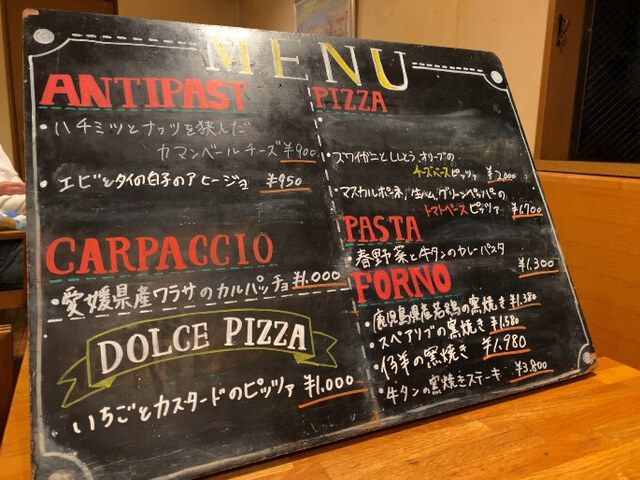 MENU
ANTIPAST
・ハチミツとナッツを挟んだ
カマンベールチーズ ¥900
・エビとタイの白子のアヒージョ ¥950
CARPACCIO
・愛媛県産ワラサのカルパッチョ ¥1.000
DOLCE PIZZA
・いちごとカスタードのピッツァ ¥1.000
PIZZA
・
・ズワイガニとししとう、オリーブの
チーズベースピッツァ ¥2.000
・マスカルポーネ、生ハム、グリーンペッパーの
トマトベースピッツァ ¥1.700
PASTA
春野菜と牛タンのカレーパスタ
¥1.300
FORNO
・鹿児島県産若鶏の窯焼き ¥1.380
・スペアリブの窯焼き ¥1.580
・仔羊の窯焼き ¥1.980
・牛タンの窯焼きステーキ ¥3.800